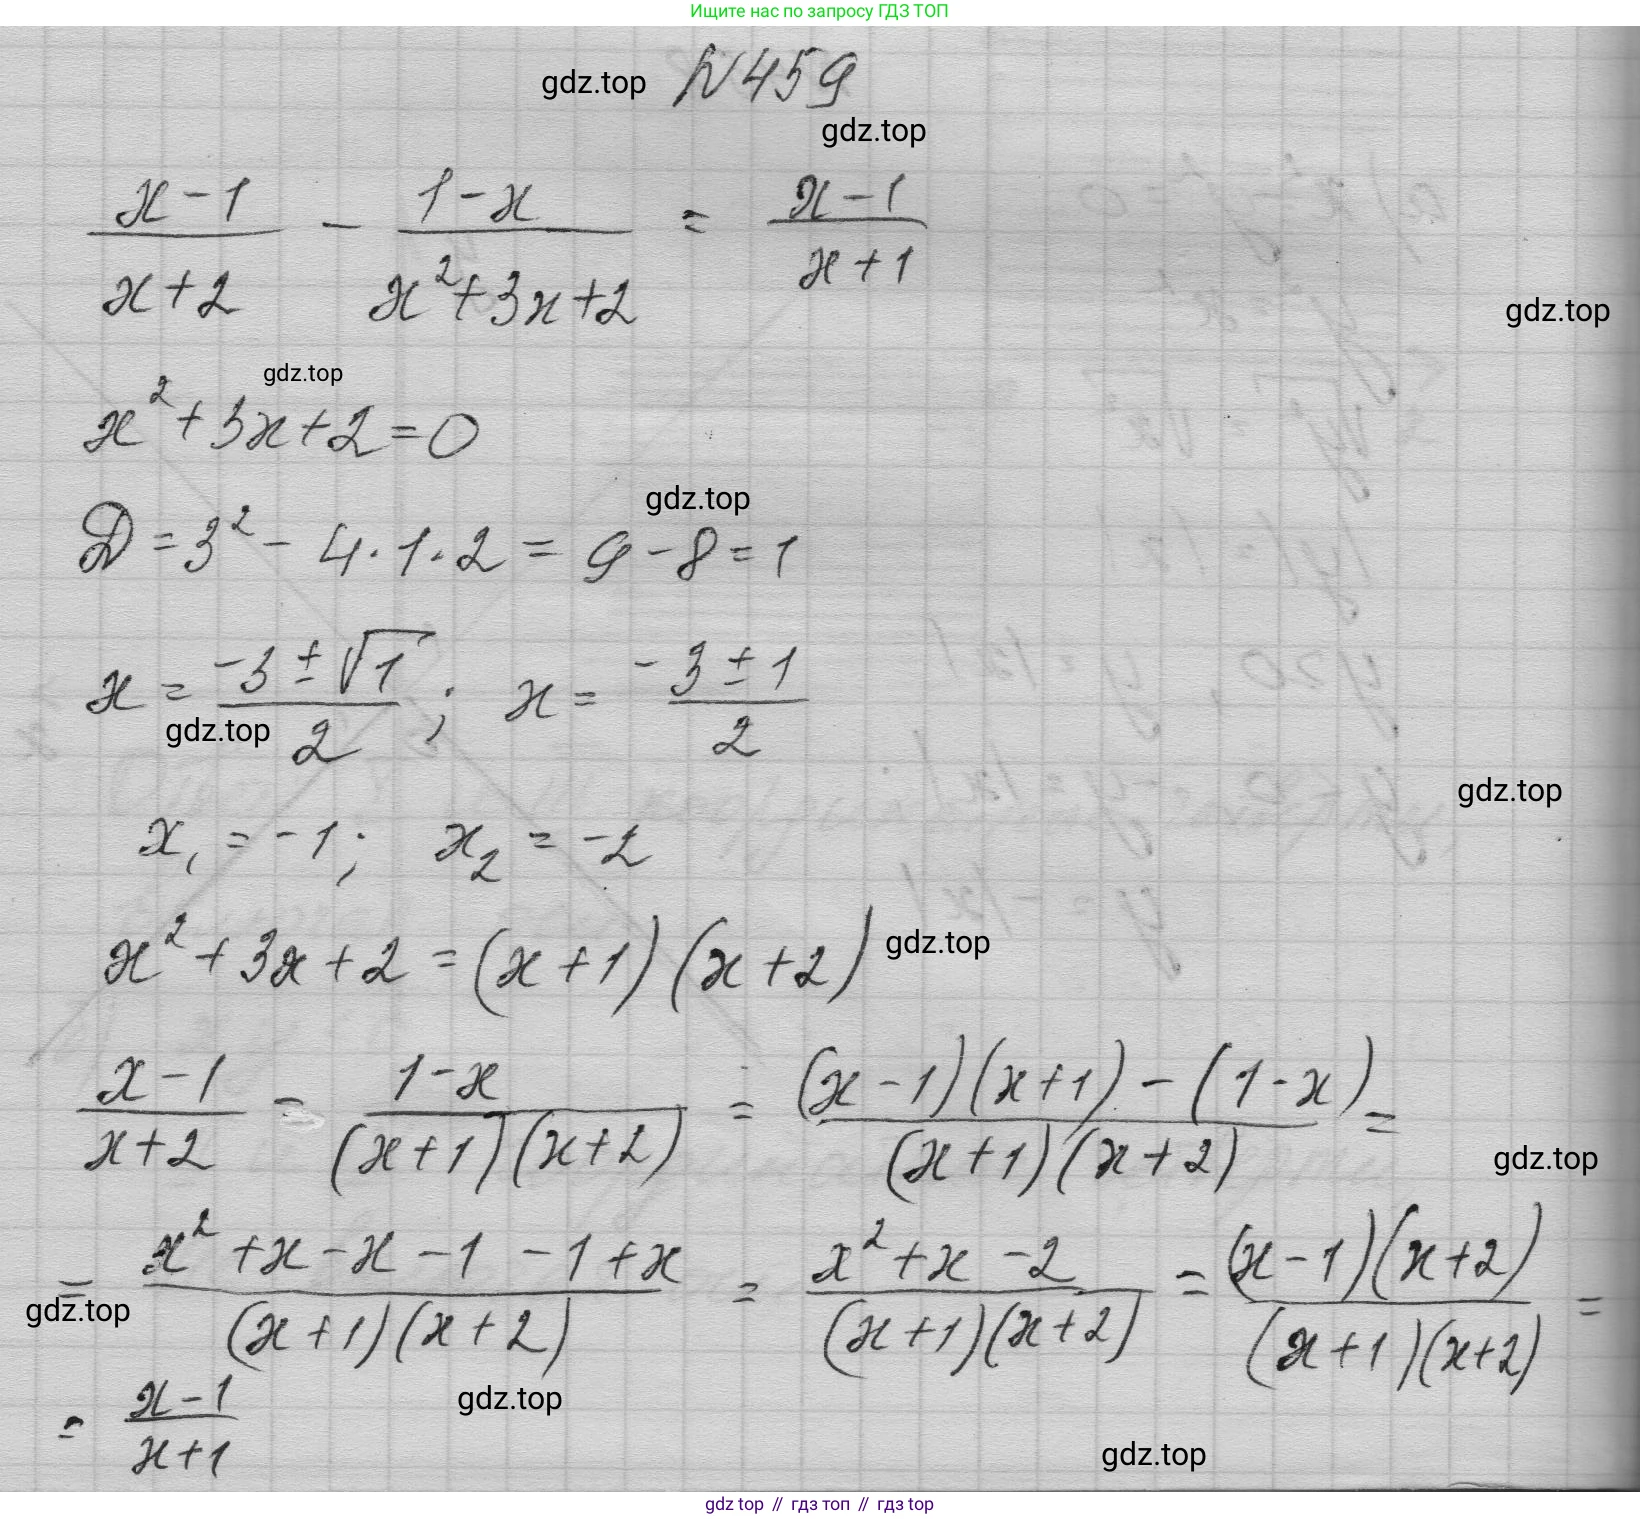 Ищите нас по запросу ГДЗ ТОП
gdz.top N459
gdz.top
(x-1)/(x+2) - (1-x)/(x²+3x+2) = (x-1)/(x+1)
gdz.top
gdz.top
x²+3x+2=0
gdz.top
D=3²-4·1·2=9-8=1
x=(-3±√1)/2; x=(-3±1)/2
gdz.top
gdz.top
x₁=-1; x₂=-2
x²+3x+2=(x+1)(x+2) gdz.top
(x-1)/(x+2) - (1-x)/((x+1)(x+2)) = ((x-1)(x+1)-(1-x))/((x+1)(x+2)) =
gdz.top
= (x²+x-x-1-1+x)/((x+1)(x+2)) = (x²+x-2)/((x+1)(x+2)) = ((x-1)(x+2))/((x+1)(x+2)) =
gdz.top
= (x-1)/(x+1)
gdz.top
gdz.top
gdz top // гдз топ // гдз top